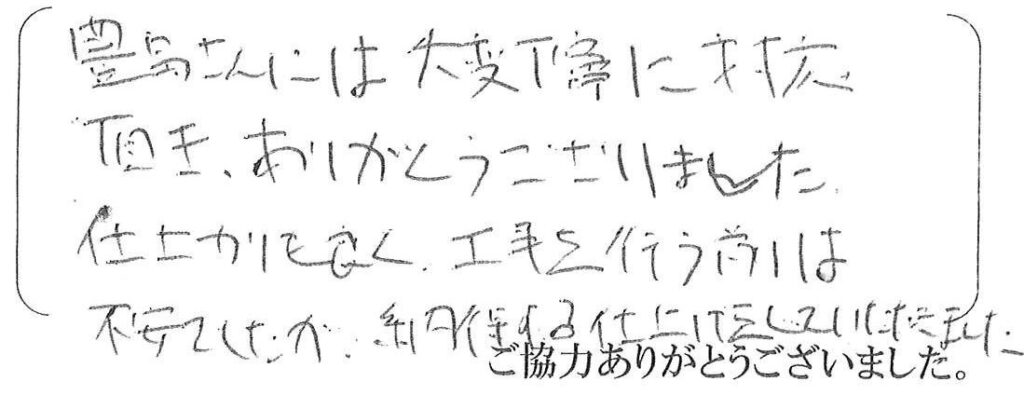 豊島さんには大変丁寧に対応
頂き、ありがとうございました.
仕上がりも良く、工事を行う前は
不安でしたが、納得する仕上げをしていただきました
ご協力ありがとうございました。